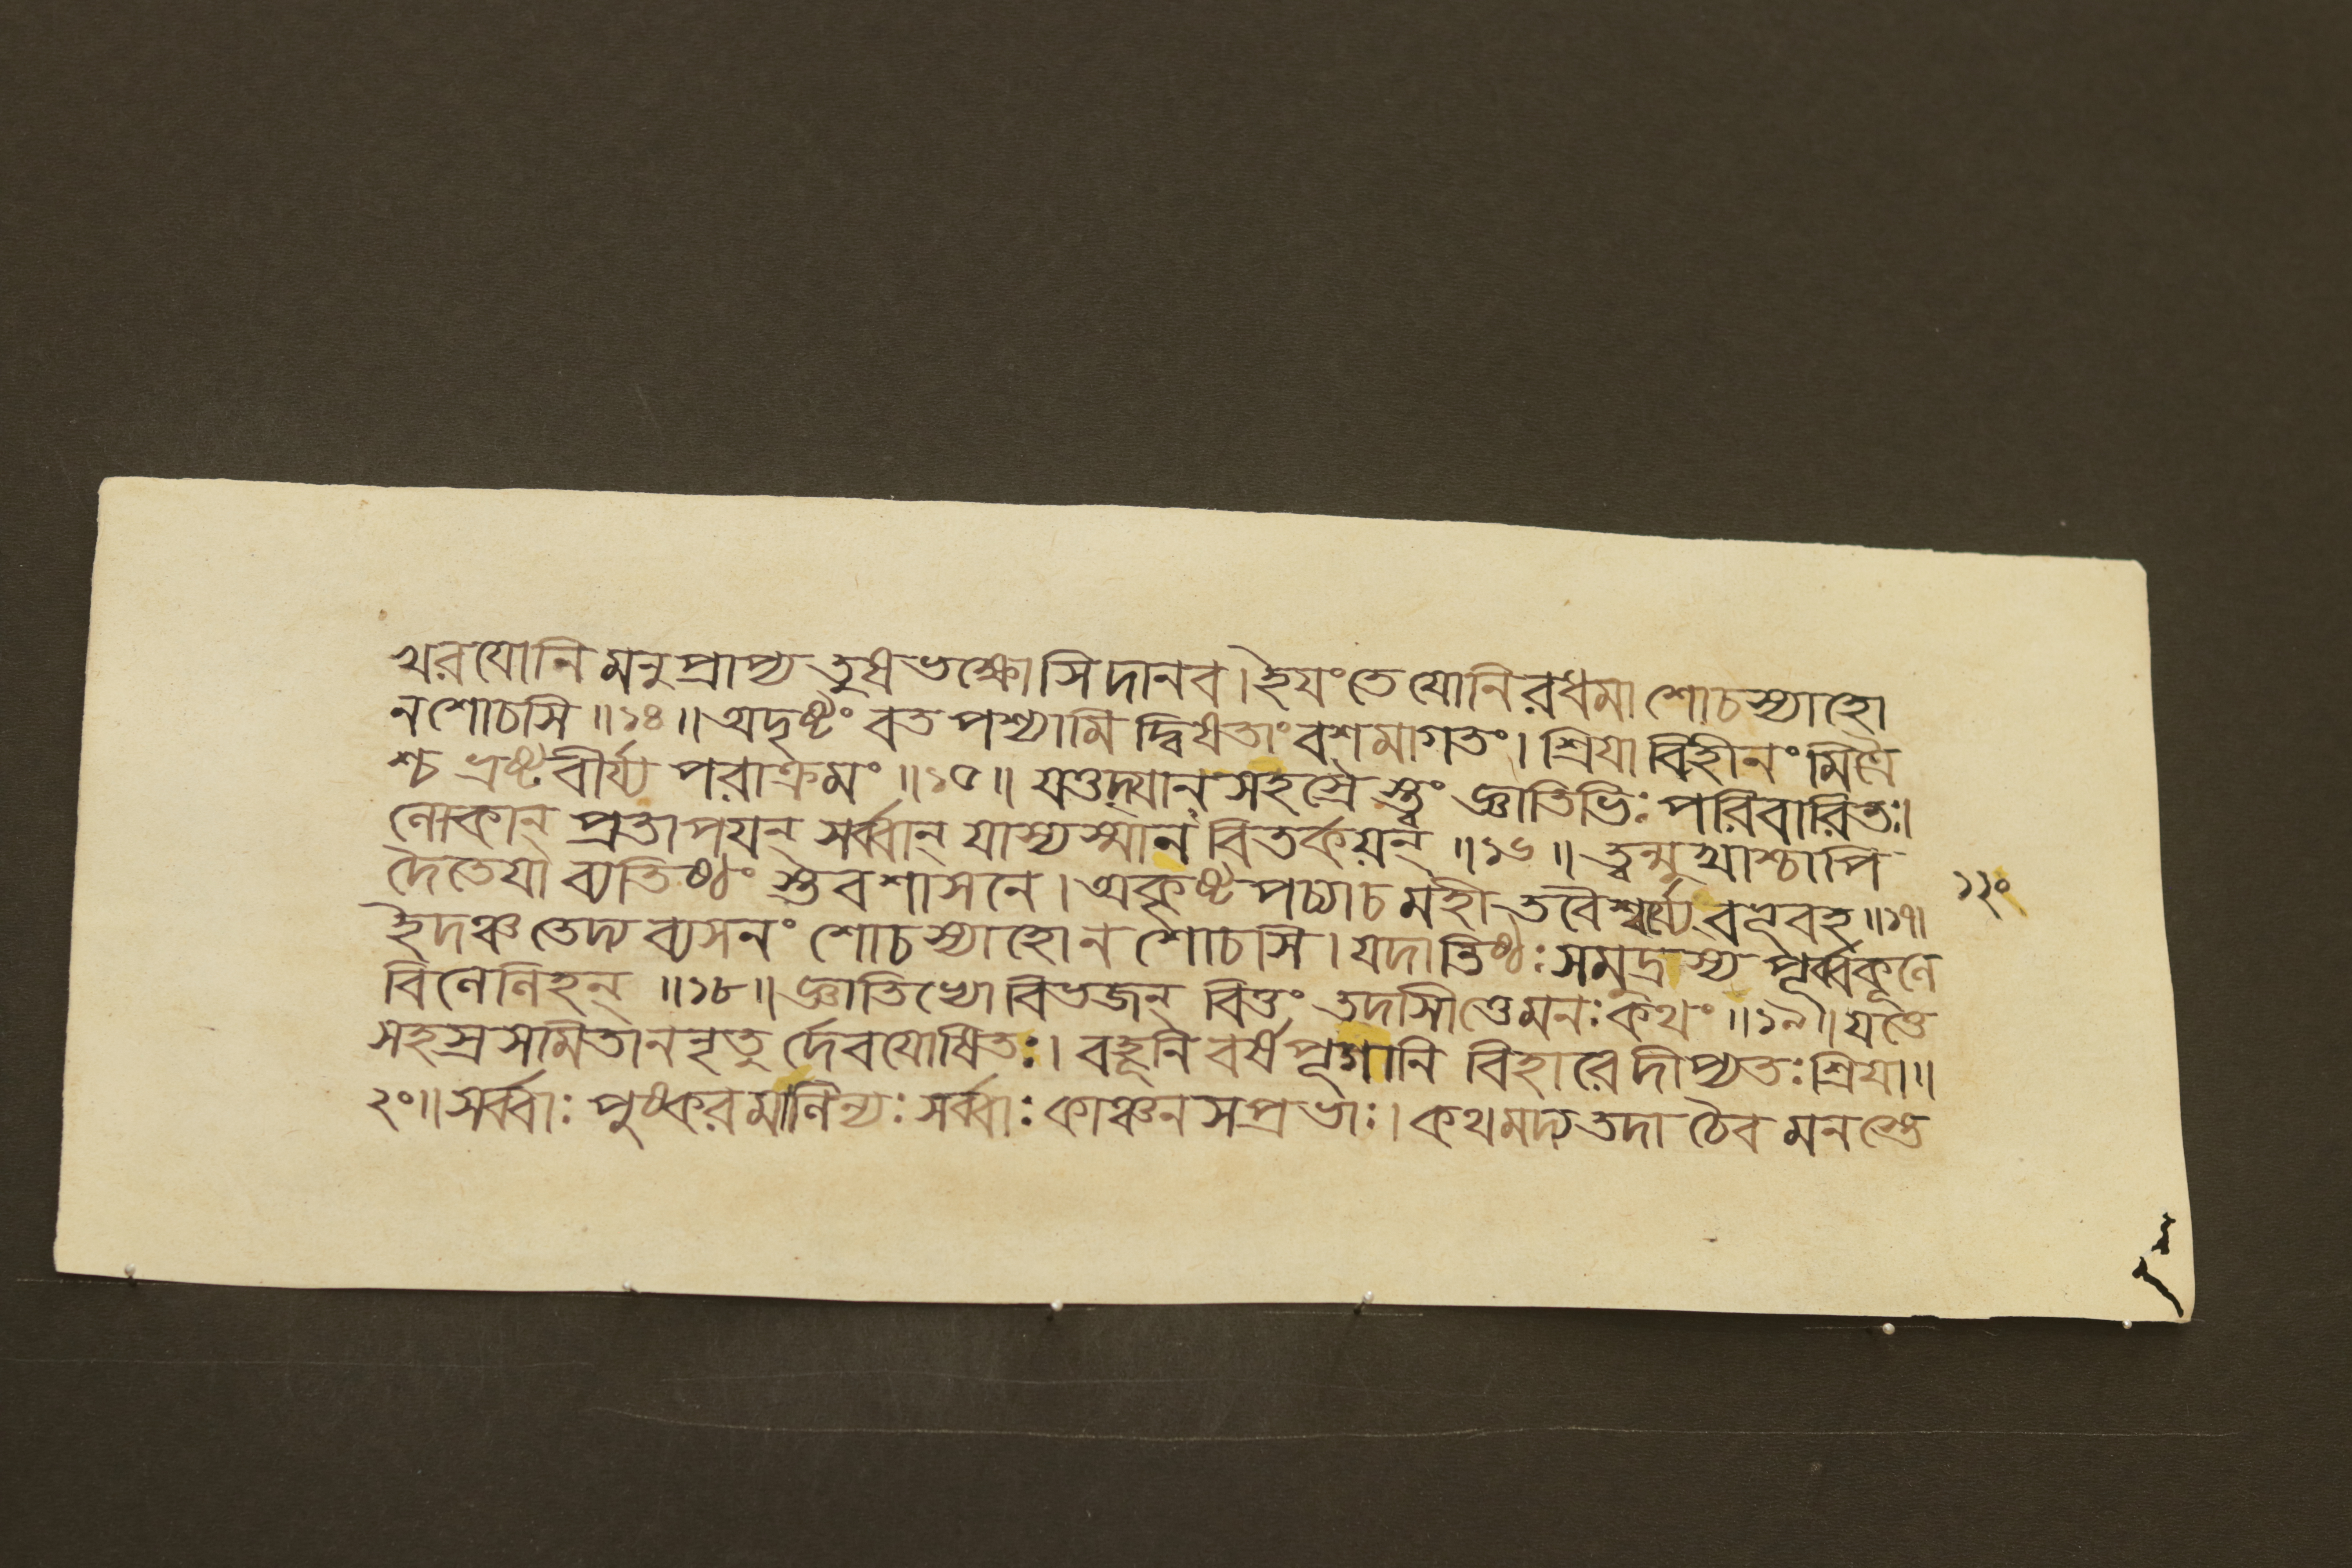 খরযোনি মনুপ্রাপ্য তুষভক্ষোসি দানব। ইযংতে যোনিরধমা শোচস্যাহো
নশোচসি ॥১৪॥ অদৃষ্টং বত পশ্যামি দ্বিষতাং বশমাগতং। শ্রিযা বিহীনং মিত্রৈ
শ্চ ভ্রষ্টবীর্য্য পরাক্রমং ॥১৫॥ যত্তদ্যান সহস্রৈ স্ত্বং জ্ঞাতিভিঃ পরিবারিতঃ।
লোকান্ প্রতাপযন্ সর্ব্বান্ যাস্যস্মান বিতর্কয়ন্ ॥১৬॥ ত্বন্মুখাশ্চাপি
দৈতেযা ব্যতিষ্ঠং স্তবশাসনে। অকৃষ্টপচ্যাচ মহী তবৈশ্বর্য্যে বলূবহ ॥১৭।
ইদঞ্চ তেদ্য ব্যসনং শোচস্যাহো ন শোচসি। যদাতিষ্ঠঃ সমুদ্রস্য পূর্ব্বকূলে
বিলেলিহন্ ॥১৮॥ জ্ঞাতিভ্যো বিভজন্ বিত্তং তদাসীত্তেমনঃ কথং ॥১৯॥ যত্তে
সহস্র সমিতা ননৃতু র্দেবযোষিতঃ। বহূনি বর্ষপূগানি বিহারে দীপ্যতঃ শ্রিযা॥
২০॥ সর্ব্বাঃ পুষ্করমালিন্যঃ সর্ব্বাঃ কাঞ্চনসপ্রভাঃ। কথমদ্য তদা চৈব মনস্তে
১২০